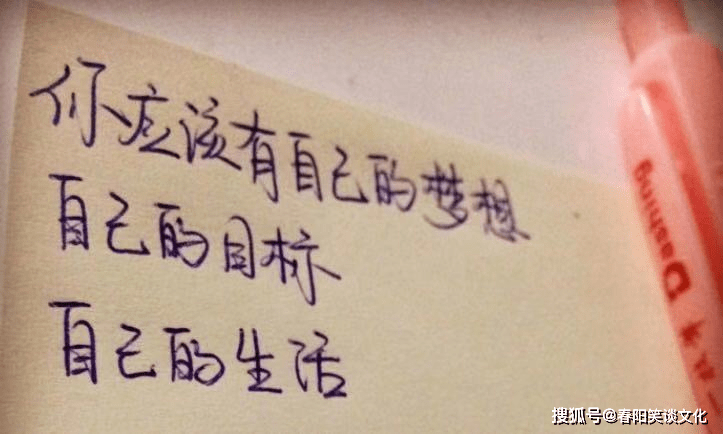 你应该有自己的梦想
自己的目标
自己的生活
Dashing
搜狐号@春阳笑谈文化